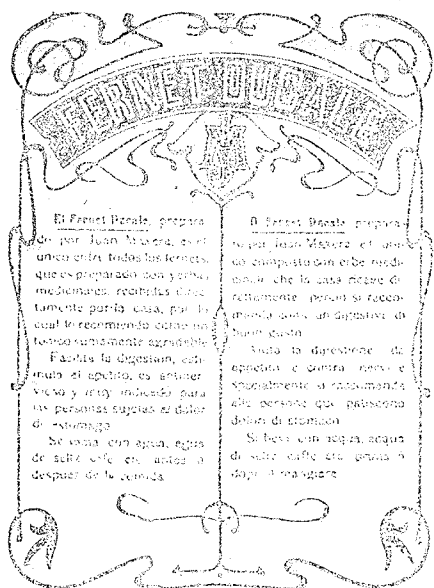 FERNET DUCALE
El Fernet Ducale, prepara-
do por Juan Maxera, es el
único entre todos los fernets,
que es preparado con yerbas
medicinales, recibidas direc-
tamente por la casa, por lo
cual lo recomiendo como un
tónico sumamente agradable
Facilita la digestion, esti-
mula el apetito, es antiner-
vioso y muy indicado para
las personas sujetas al dolor
de estómago
Se toma con agua, agua
de seltz café etc. antes o
despues de la comida.
Il Fernet Ducale prepara-
to per Juan Maxera é l' uni-
co composto con erbe medi-
cinali che la casa riceve di-
rettamente perció si racco-
manda come un digestivo di
buon gusto
Aiuta la digestione da
appetito é contra nervi e
specialmente si raccomanda
alle persone que patiscono
dolori di stomaco
Si beve con acqua, acqua
di seltz caffe etc. prima ó
dopo il mangiare